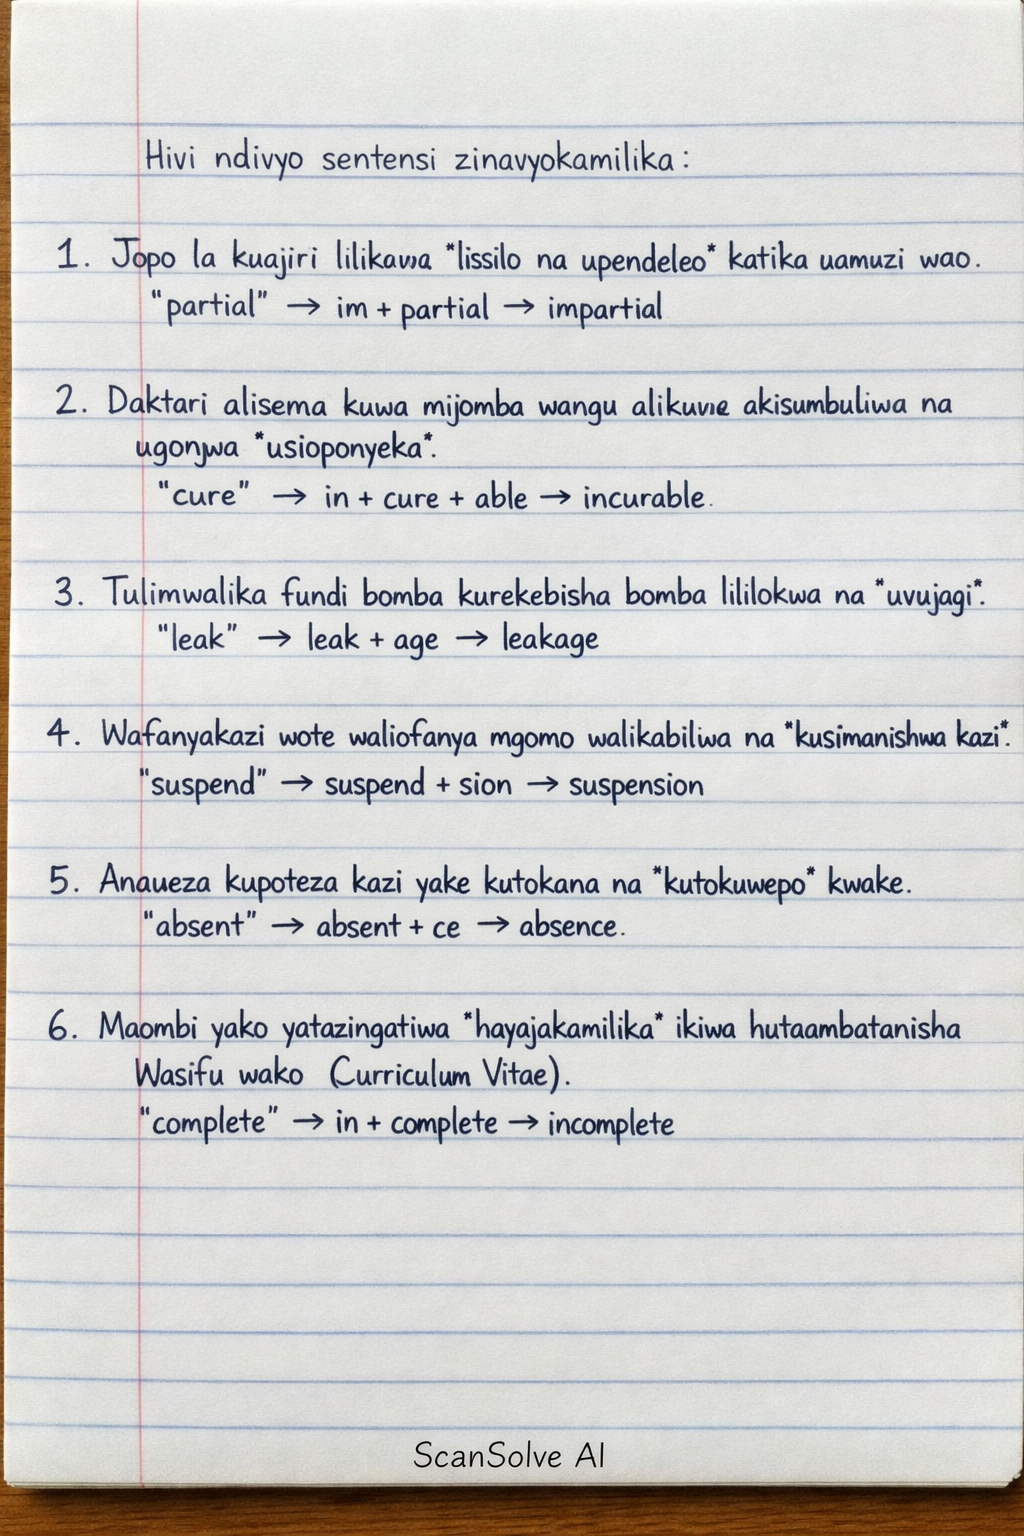 Hivi ndivyo sentensi zinavyokamilika:
1. Jopo la kuajiri lilikawa *lissilo na upendeleo* katika uamuzi wao.
"partial" → im + partial → impartial
2. Daktari alisema kuwa mijomba wangu alikuwe akisumbuliwa na
ugonjwa *usioponyeka*.
"cure" → in + cure + able → incurable.
3. Tulimwalika fundi bomba kurekebisha bomba lililokwa na *uvujagi*.
"leak" → leak + age → leakage
4. Wafanyakazi wote waliofanya mgomo walikabiliwa na *kusimanishwa kazi*.
"suspend" → suspend + sion → suspension
5. Anaueza kupoteza kazi yake kutokana na *kutokuwepo* kwake.
"absent" → absent + ce → absence.
6. Maombi yako yatazingatiwa *hayajakamilika* ikiwa hutaambatanisha
Wasifu wako (Curriculum Vitae).
"complete" → in + complete → incomplete
ScanSolve AI